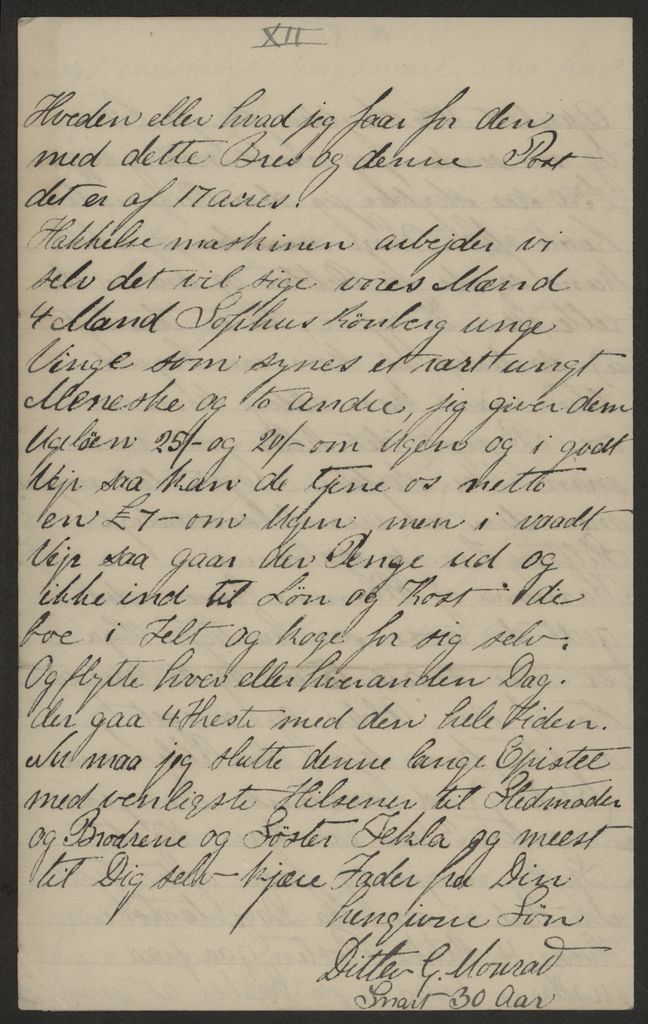 XII
Hveden eller hvad jeg faar for den
med dette Brev og denne Post
det er af 17 acres.
Hakkelse maskinen arbejder vi
selv det vil sige vores Mænd
4 Mand Sophus Rönberg unge
Vinge som synes et rart ungt
Meneske og to andre, jeg giver dem
Ugelöen 25/- og 20/- om Ugen og i godt
Vejr saa kan de tjene os netto
en £7 - om Ugen men i vaadt
Vejr saa gaar der Penge ud og
ikke ind til Lön og Kost de
boe i Telt og koge for sig selv.
Og flytte hver eller hveranden Dag.
der gaa 4 Heste med den hele Tiden.
Nu maa jeg slutte denne lange Epistel
med venligste Hilsener til Stedmoder
og Brødrene og Söster Tekla og meest
til Dig selv - kjære Fader fra Din
hengivne Sön
Ditlev G. Monrad
Snart 30 Aar